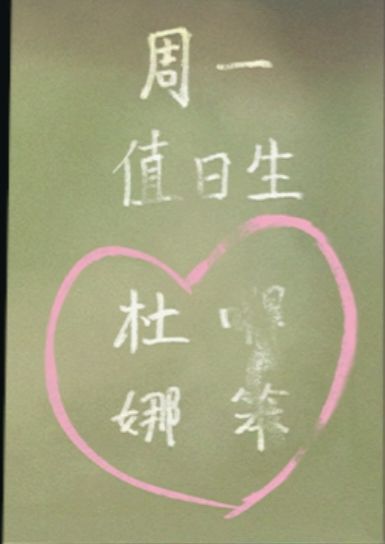 周一
值日生
杜
娜 笨